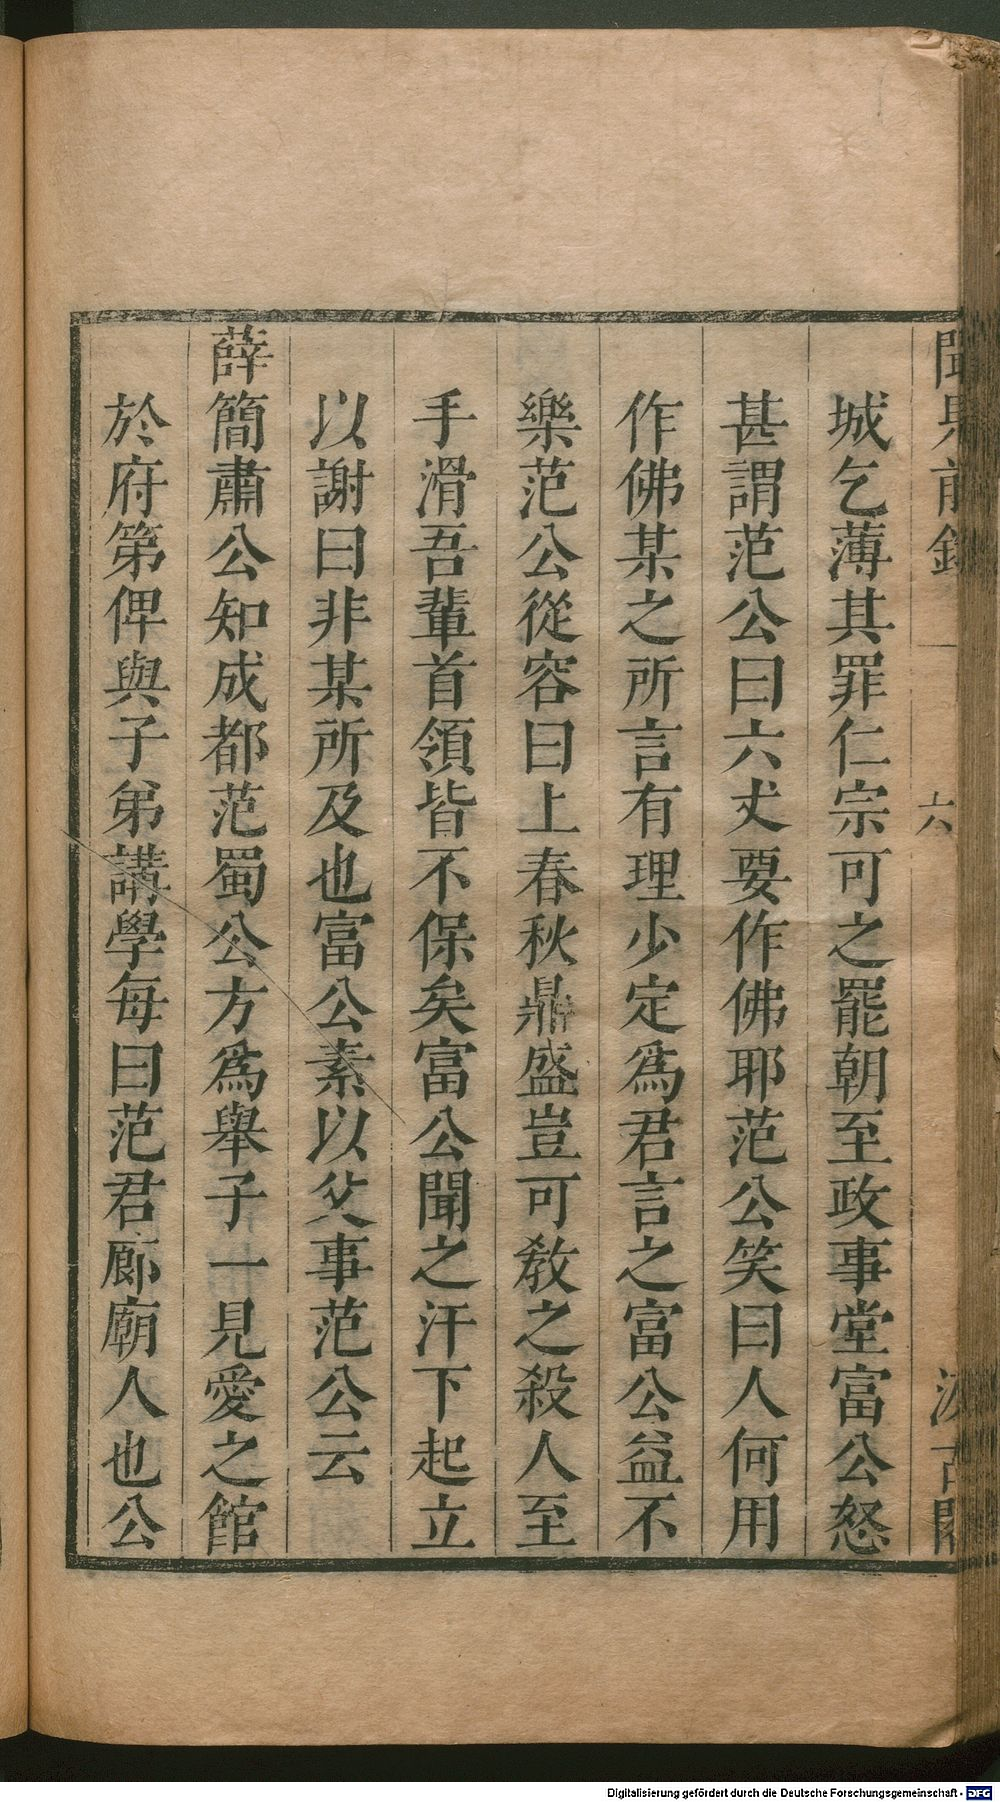 聞見前錄 一 六 汲古閣
城乞薄其罪仁宗可之罷朝至政事堂富公怒
甚謂范公曰六丈要作佛耶范公笑曰人何用
作佛某之所言有理少定爲君言之富公益不
樂范公從容曰上春秋鼎盛豈可敎之殺人至
手滑吾輩首領皆不保矣富公聞之汗下起立
以謝曰非某所及也富公素以父事范公云
薛簡肅公知成都范蜀公方爲舉子一見愛之館
於府第俾與子弟講學每曰范君廊廟人也公
Digitalisierung gefördert durch die Deutsche Forschungsgemeinschaft - DFG